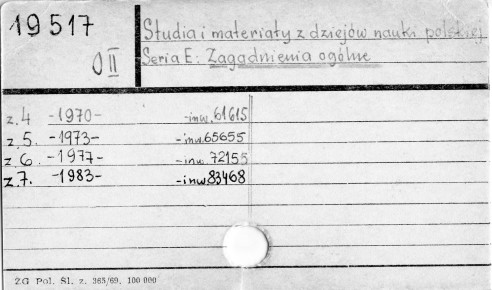 19517
O II
Studia i materiały z dziejów nauki polskiej
Seria E: Zagadnienia ogólne
z.4 -1970- -inw.61615
z.5. -1973- -inw.65655
z.6. -1977- -inw.72155
z.7. -1983- -inw.83468
ZG Pol. Śl. z. 365/69, 100 000